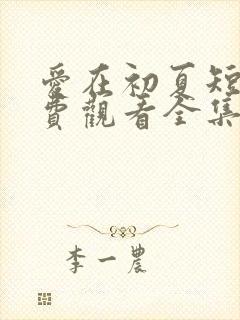 愛在初夏短
費觀看全集
李一農